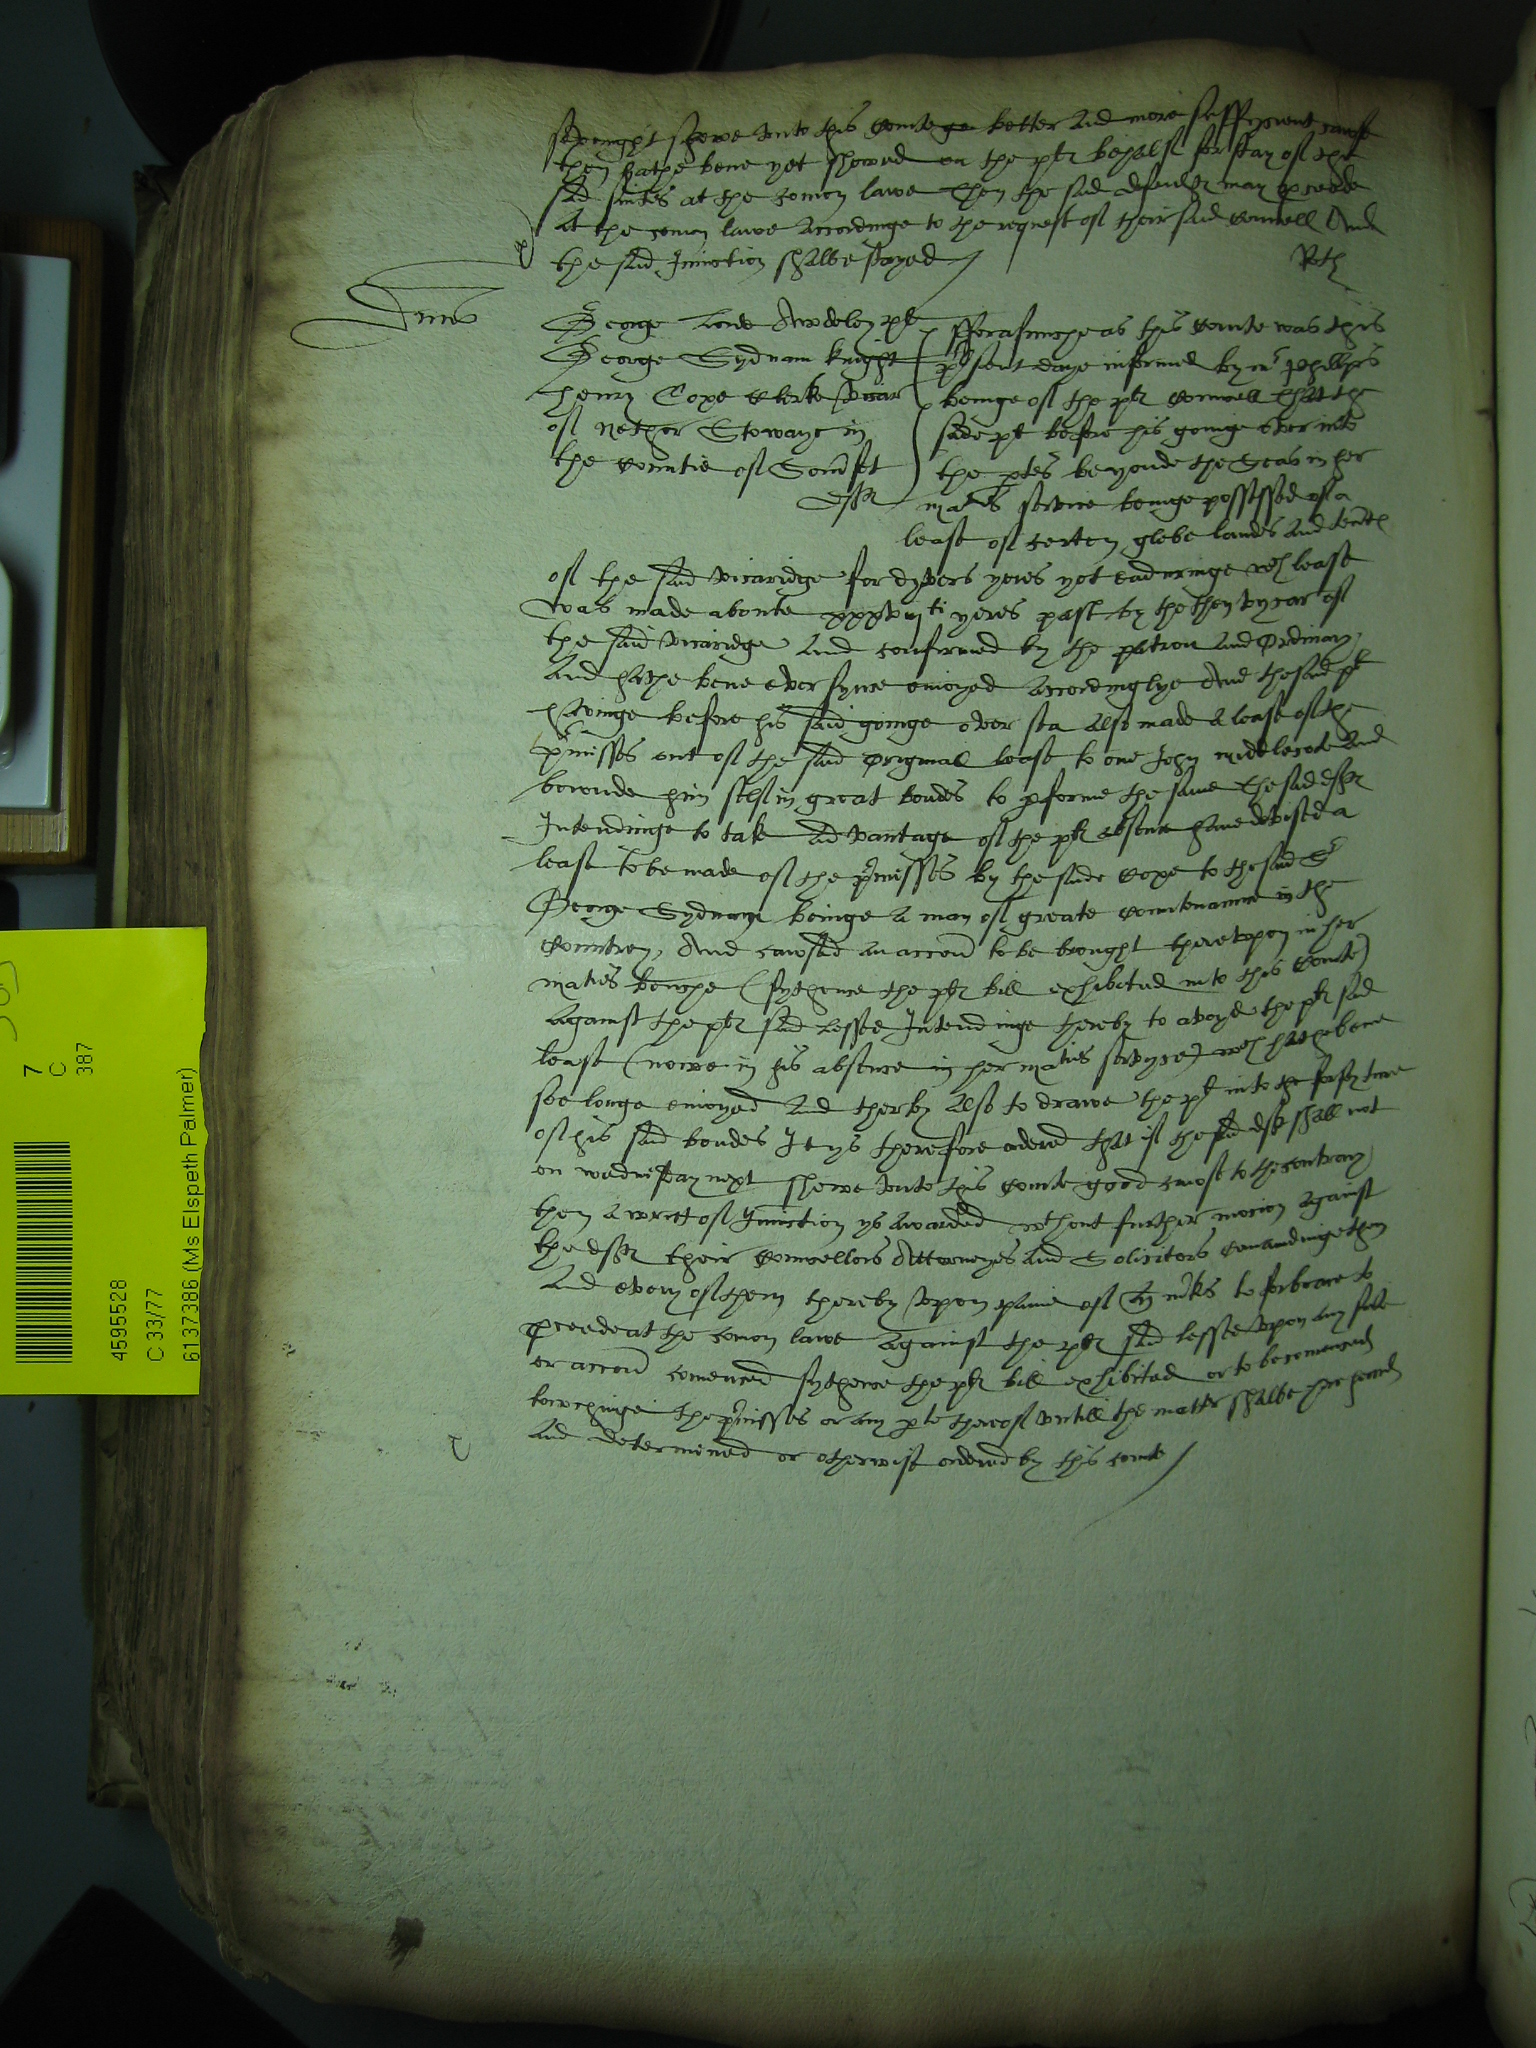 sevenight shewe unto this courte better and more suffycyent cause
then hathe bene yet shewed on the plts behalf for stay of the
said suites at the comon lawe then the said defendts may procede
at the comon lawe accordinge to the request of their said councell And
the said Iniunction shalbe stayed /
Roth
George Lord Awdeley plt
George Sydnam knight
henry Cope Clerke vicar
of Nether Stowaye in
the countie of Somset
defts
fforasmuche as this courte was this
present daye informed by mr Phellipes
beinge of the plts councell that the
saide plt before his goinge over into
the ptes beyonde the Seas in her
maties service beinge possessed of a
lease of certen glebe landes and tents
of the said vicaridge for dyvers yeres yet enduringe wch lease
was made aboute xxxvij ti yeres past by the then vycar of
the said vicaridge and confirmed by the patron and Ordinary
and hathe bene ever synce enioyed accordinglye And the said plt
havinge before his said goinge over sea also made a lease of the
pmisses out of the said originall lease to one John middlecote and
bounde him self in great bondes to pforme the same the said defts
Intendinge to take advantage of the plts absence have devised a
lease to be made of the pmisses by the saide Cope to the said Sr
George Sydnam beinge a man of greate countenance in the
countrey, And caused an accon to be brought thereupon in her
maties benche (sythence the plts bill exhibited into this courte)
against the plts said lessee Intendinge thereby to avoyde the plts said
lease (nowe in his absence in her maties service) wch hathe bene
soe longe enioyed and therby also to drawe the plt into the forfeyture
of his said bondes It ys therefore ordered that if the said defts shall not
on wednesday next shewe unto this courte good cause to the contrary
then a writt of Iniunction ys awarded wthout further mocion against
the defts their councellors Attorneyes and Solicitors comandinge them
and every of them thereby upon paine of mks to forbeare to
pceede at the comon lawe against the plts said lessee upon any suite
or accon comenced sythence the plts bill exhibited or to be comenced
towchinge the pmisses or any pte thereof untill the matter shalbe here heard
and determined or otherwise ordered by this courte /
7
C
387
4595528
C 33/77
6137386 (Ms Elspeth Palmer)